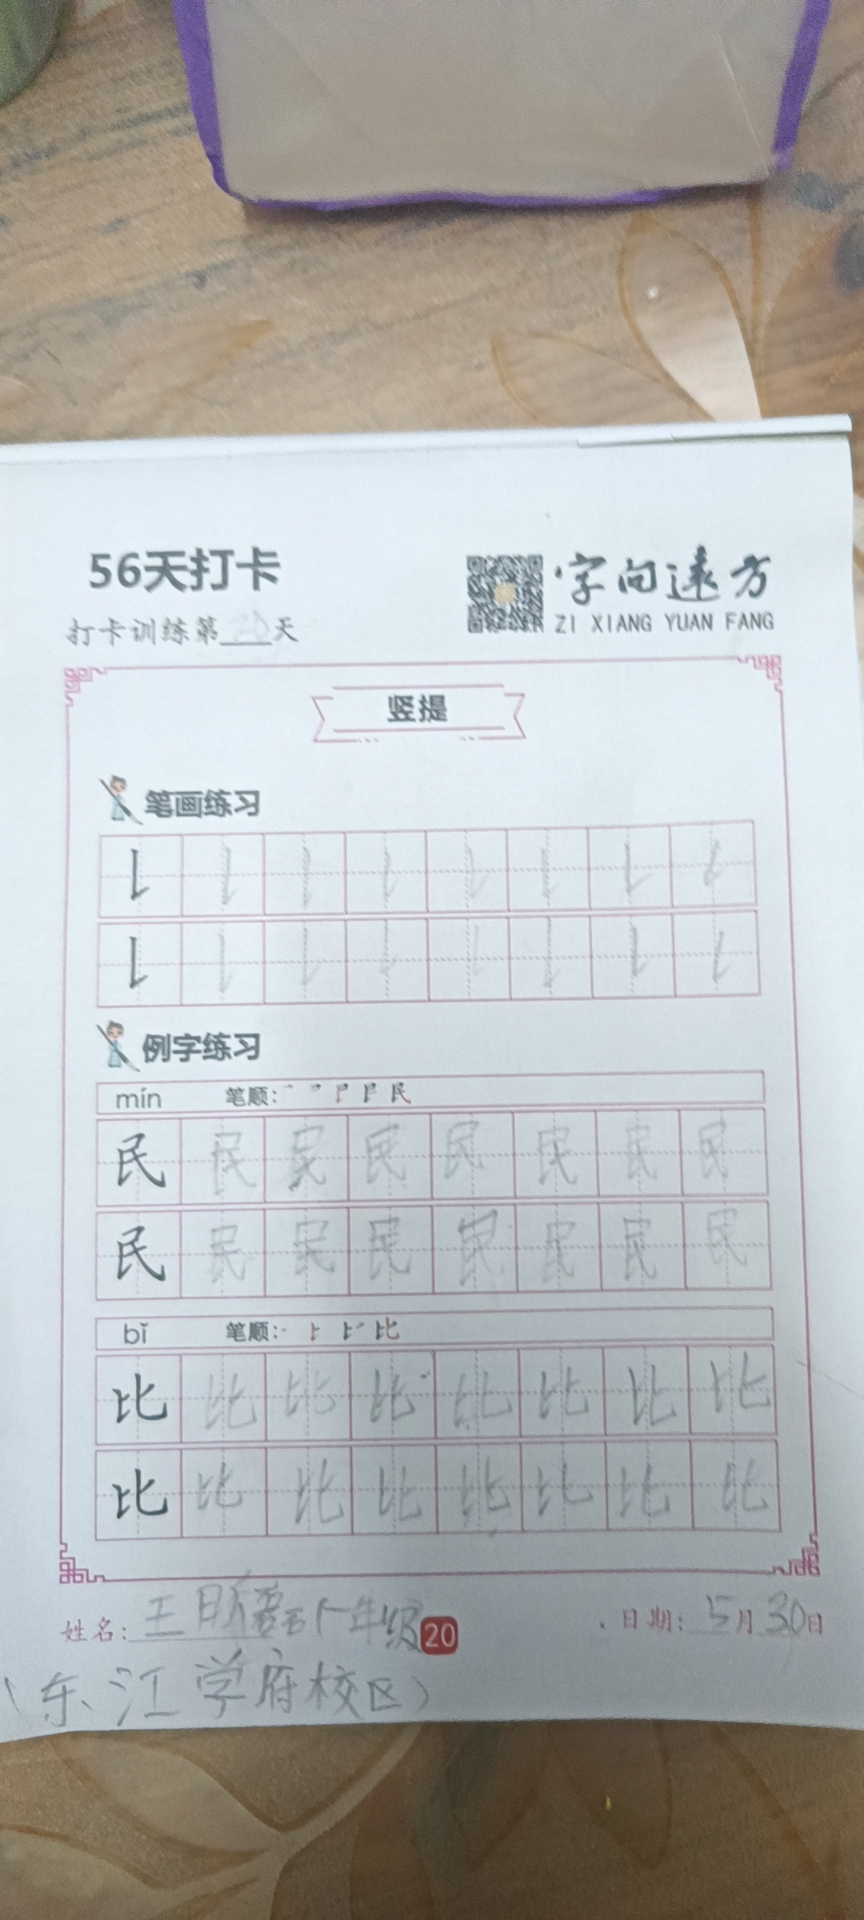 56天打卡
字向遠方
打卡训练第20天
ZI XIANG YUAN FANG
竖提
笔画练习
例字练习
mín 笔顺: 民
民 民 民 民 民 民 民 民
民 民 民 民 民 民 民 民
bǐ 笔顺: 比
比 比 比 比 比 比 比 比
比 比 比 比 比 比 比 比
姓名: 王 一年级 20 日期: 5月30日
(东江学府校区)